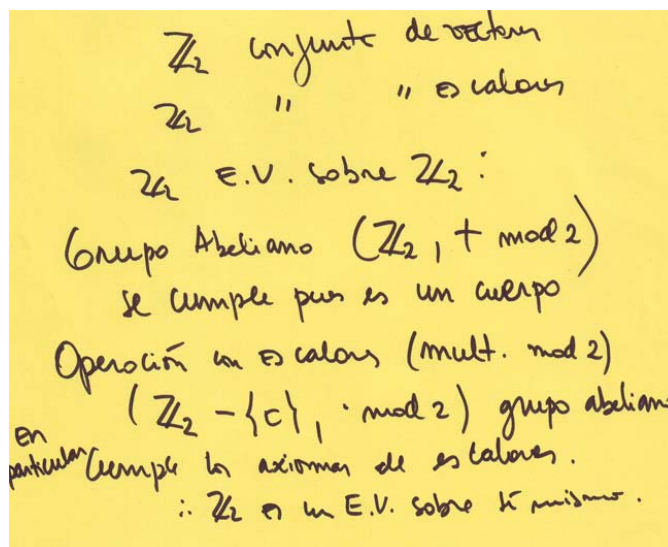 ℤ₂ conjunto de vectores
ℤ₂ " " escalares
ℤ₂ E.V. sobre ℤ₂ :
Grupo Abeliano (ℤ₂ , + mod 2)
se cumple pues es un cuerpo
Operación con escalares (mult. mod 2)
(ℤ₂ - {c}, · mod 2) grupo abeliano
En particular cumple los axiomas de escalares.
∴ ℤ₂ es un E.V. sobre sí mismo.